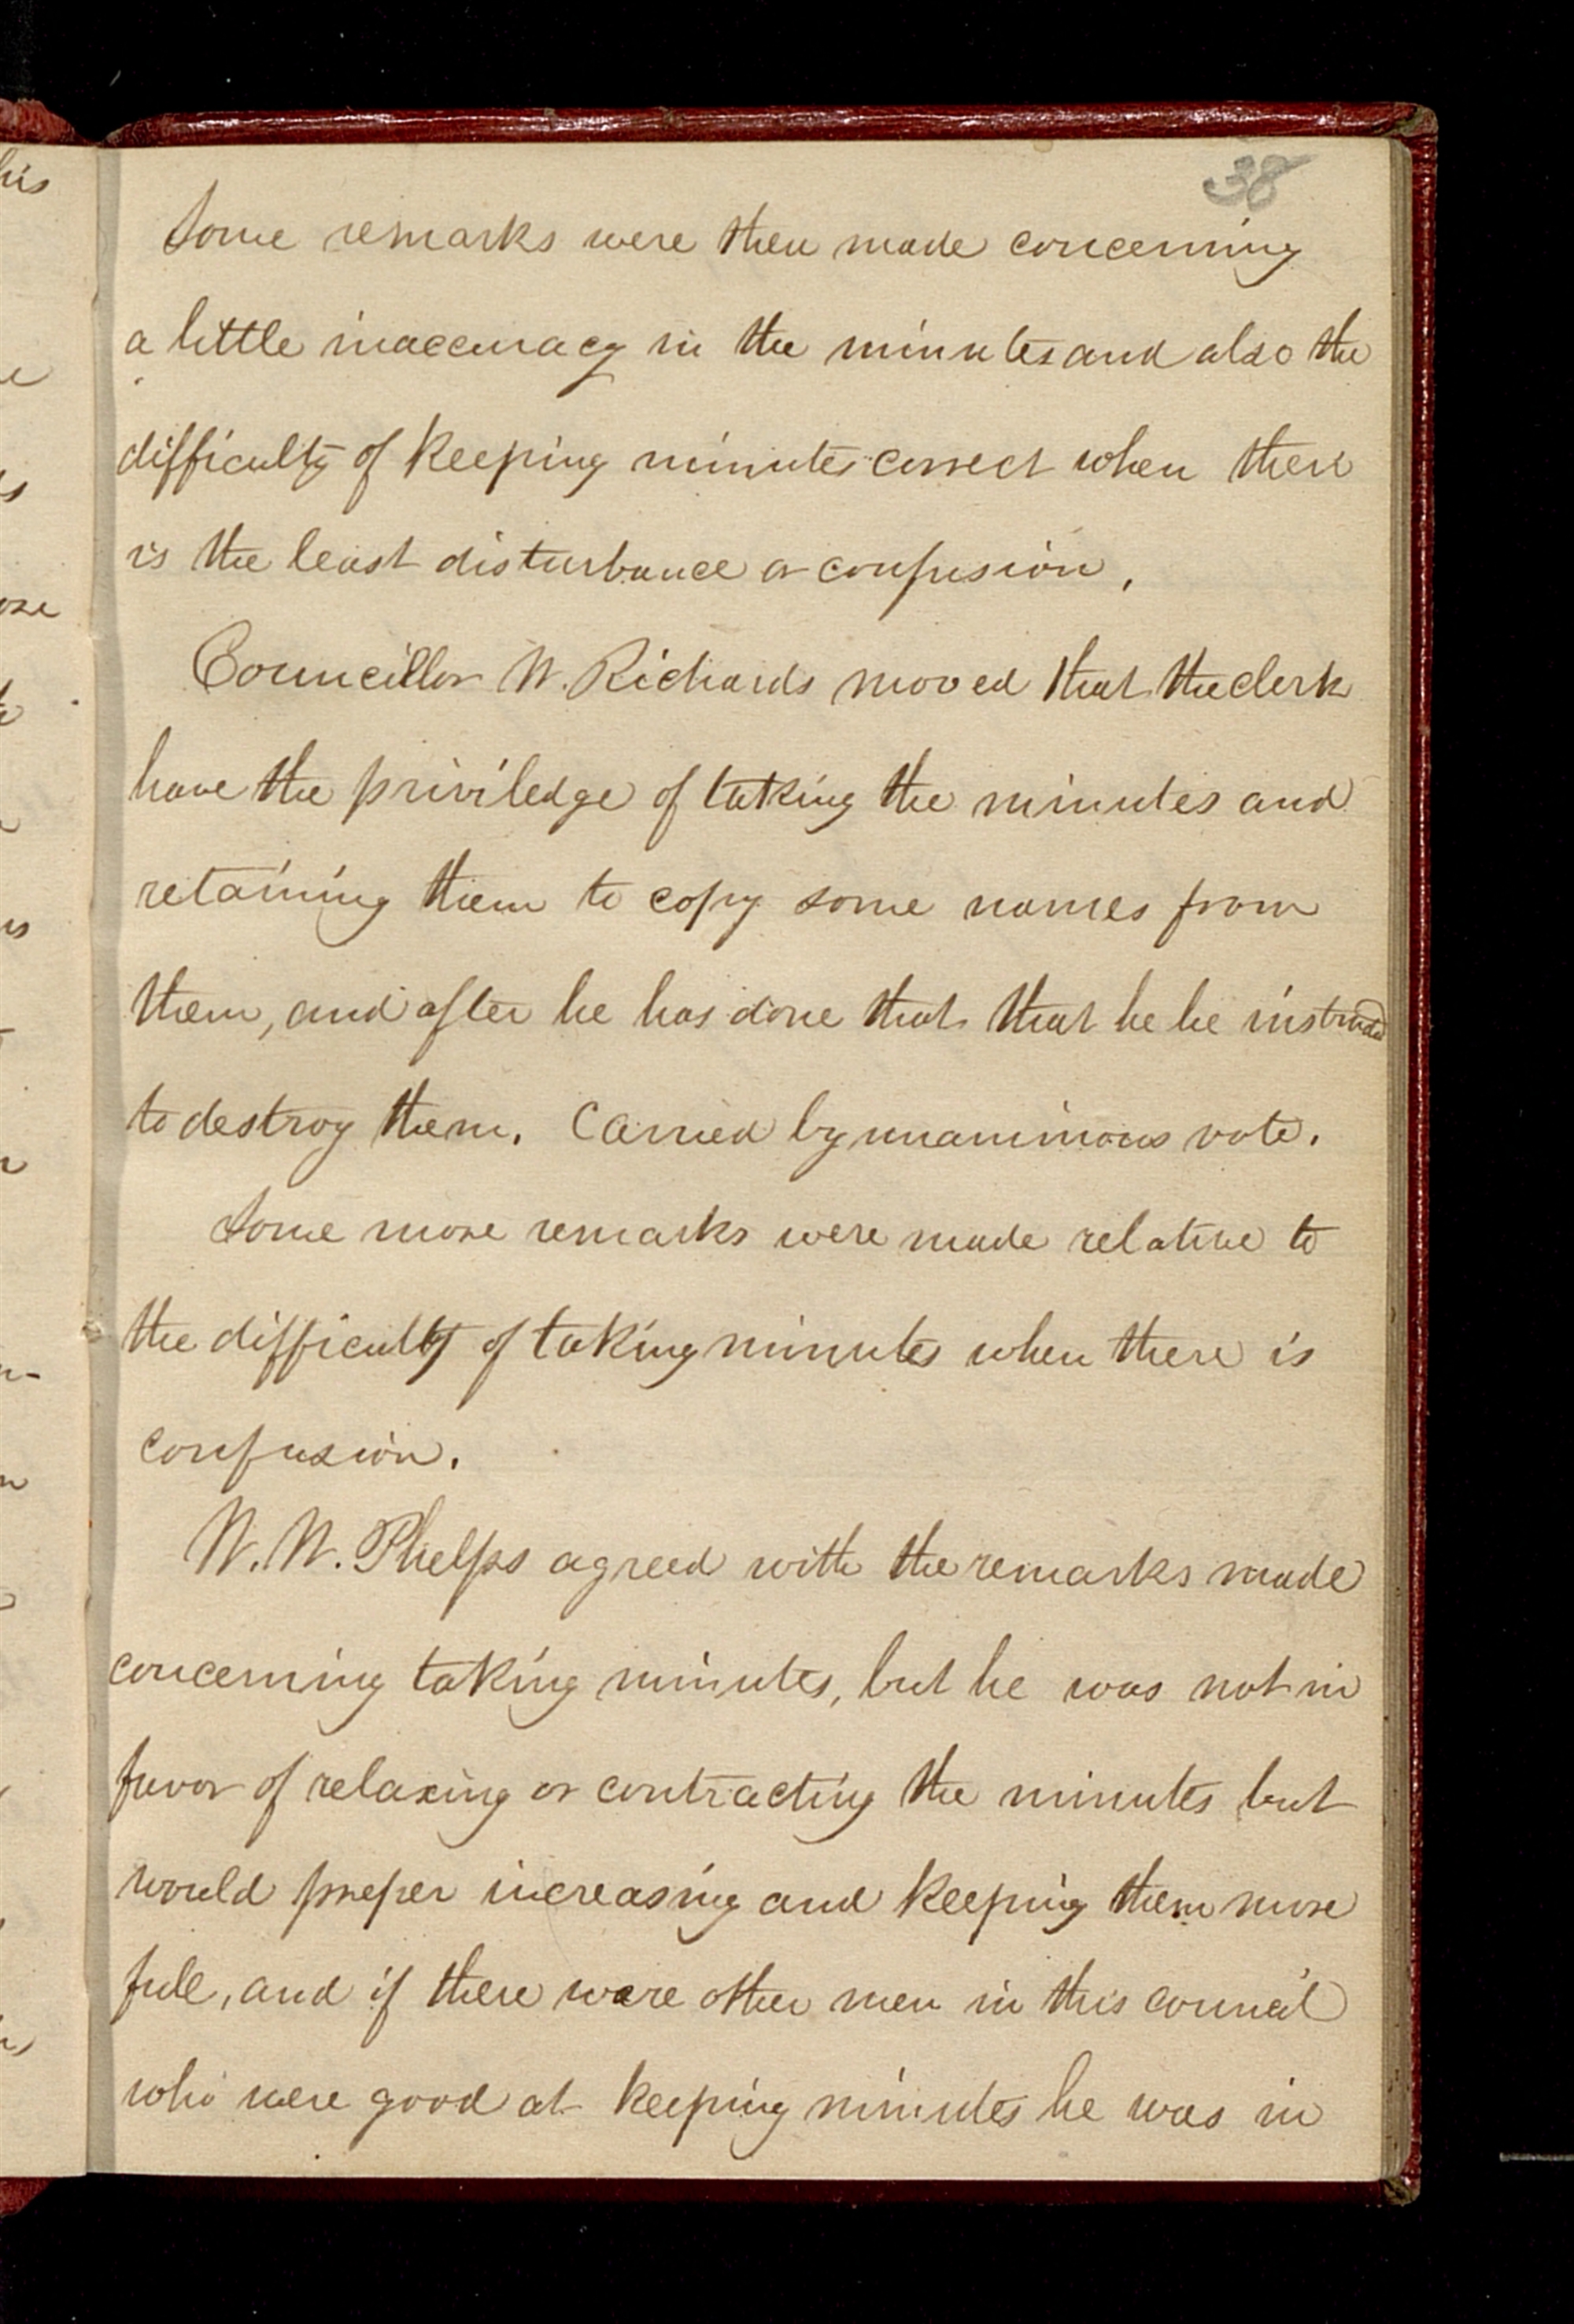 38
Some remarks were then made concerning
a little inaccuracy in the minutes and also the
difficulty of keeping minutes correct when there
is the least disturbance or confusion.
Councillor W. Richards moved that the clerk
have the priviledge of taking the minutes and
retaining them to copy some names from
them, and after he has done that that he be instructed
to destroy them. Carried by unanimous vote.
Some more remarks were made relative to
the difficulty of taking minutes when there is
confusion.
W. W. Phelps agreed with the remarks made
concerning taking minutes, but he was not in
favor of relaxing or contracting the minutes but
would prefer increasing and keeping them more
full, and if there were other men in this council
who were good at keeping minutes he was in